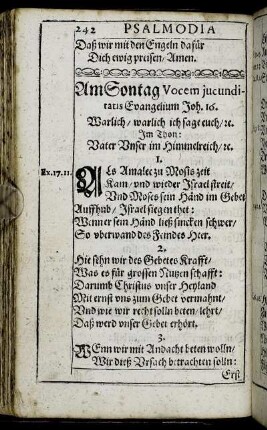 242 PSALMODIA
Daß wir mit den Engeln dafür
Dich ewig preisen/ Amen.
Am Sontag Vocem jucundi-
tatis Evangelium Joh. 16.
Warlich/ warlich ich sage euch/ ꝛc.
Im Thon:
Vater Vnser im Himmelreich/ ꝛc.
1.
Ex. 17. 11.
Als Amalec zu Mosis zeit
Kam/ vnd wieder Israel streit/
Vnd Moses sein Händ im Gebet
Auffhub/ Israel siegen thet:
Wenn er sein Händ ließ sincken schwer/
So vberwand des Feindes Heer.
2.
Hie sehn wir des Gebetes Krafft/
Was es für grossen Nutzen schafft:
Darumb Christus vnser Heyland
Mit ernst vns zum Gebet vermahnt/
Vnd wie wir recht solln beten/ lehrt/
Daß werd vnser Gebet erhört.
3.
WEnn wir mit Andacht beten wolln/
Wir dieß Vrsach betrachten solln:
Erst